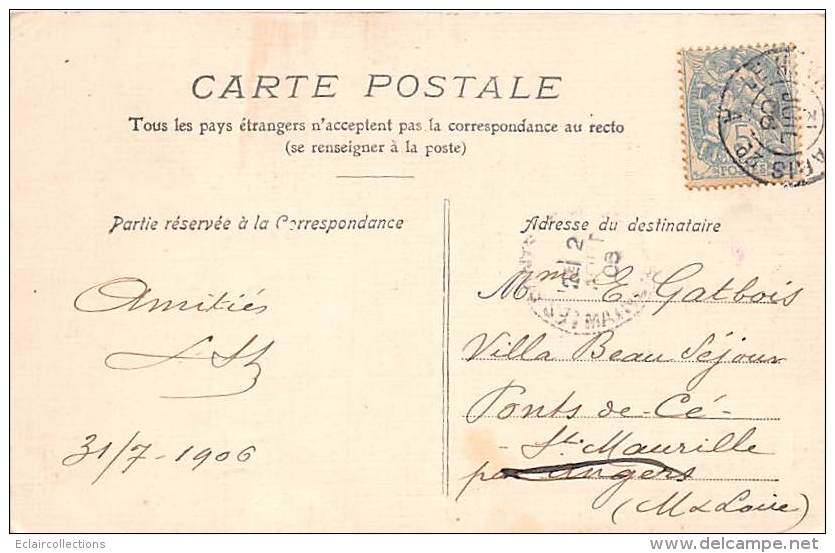 CARTE POSTALE
Tous les pays étrangers n'acceptent pas la correspondance au recto
(se renseigner à la poste)
Partie réservée à la Correspondance
Adresse du destinataire
Amitiés
31/7-1906
Mme E Gatbois
Villa Beau Séjour
Ponts-de-Cé-
- St. Maurille
par Angers
(M & Loire)
POSTES
Eclaircollections
delcampe.net